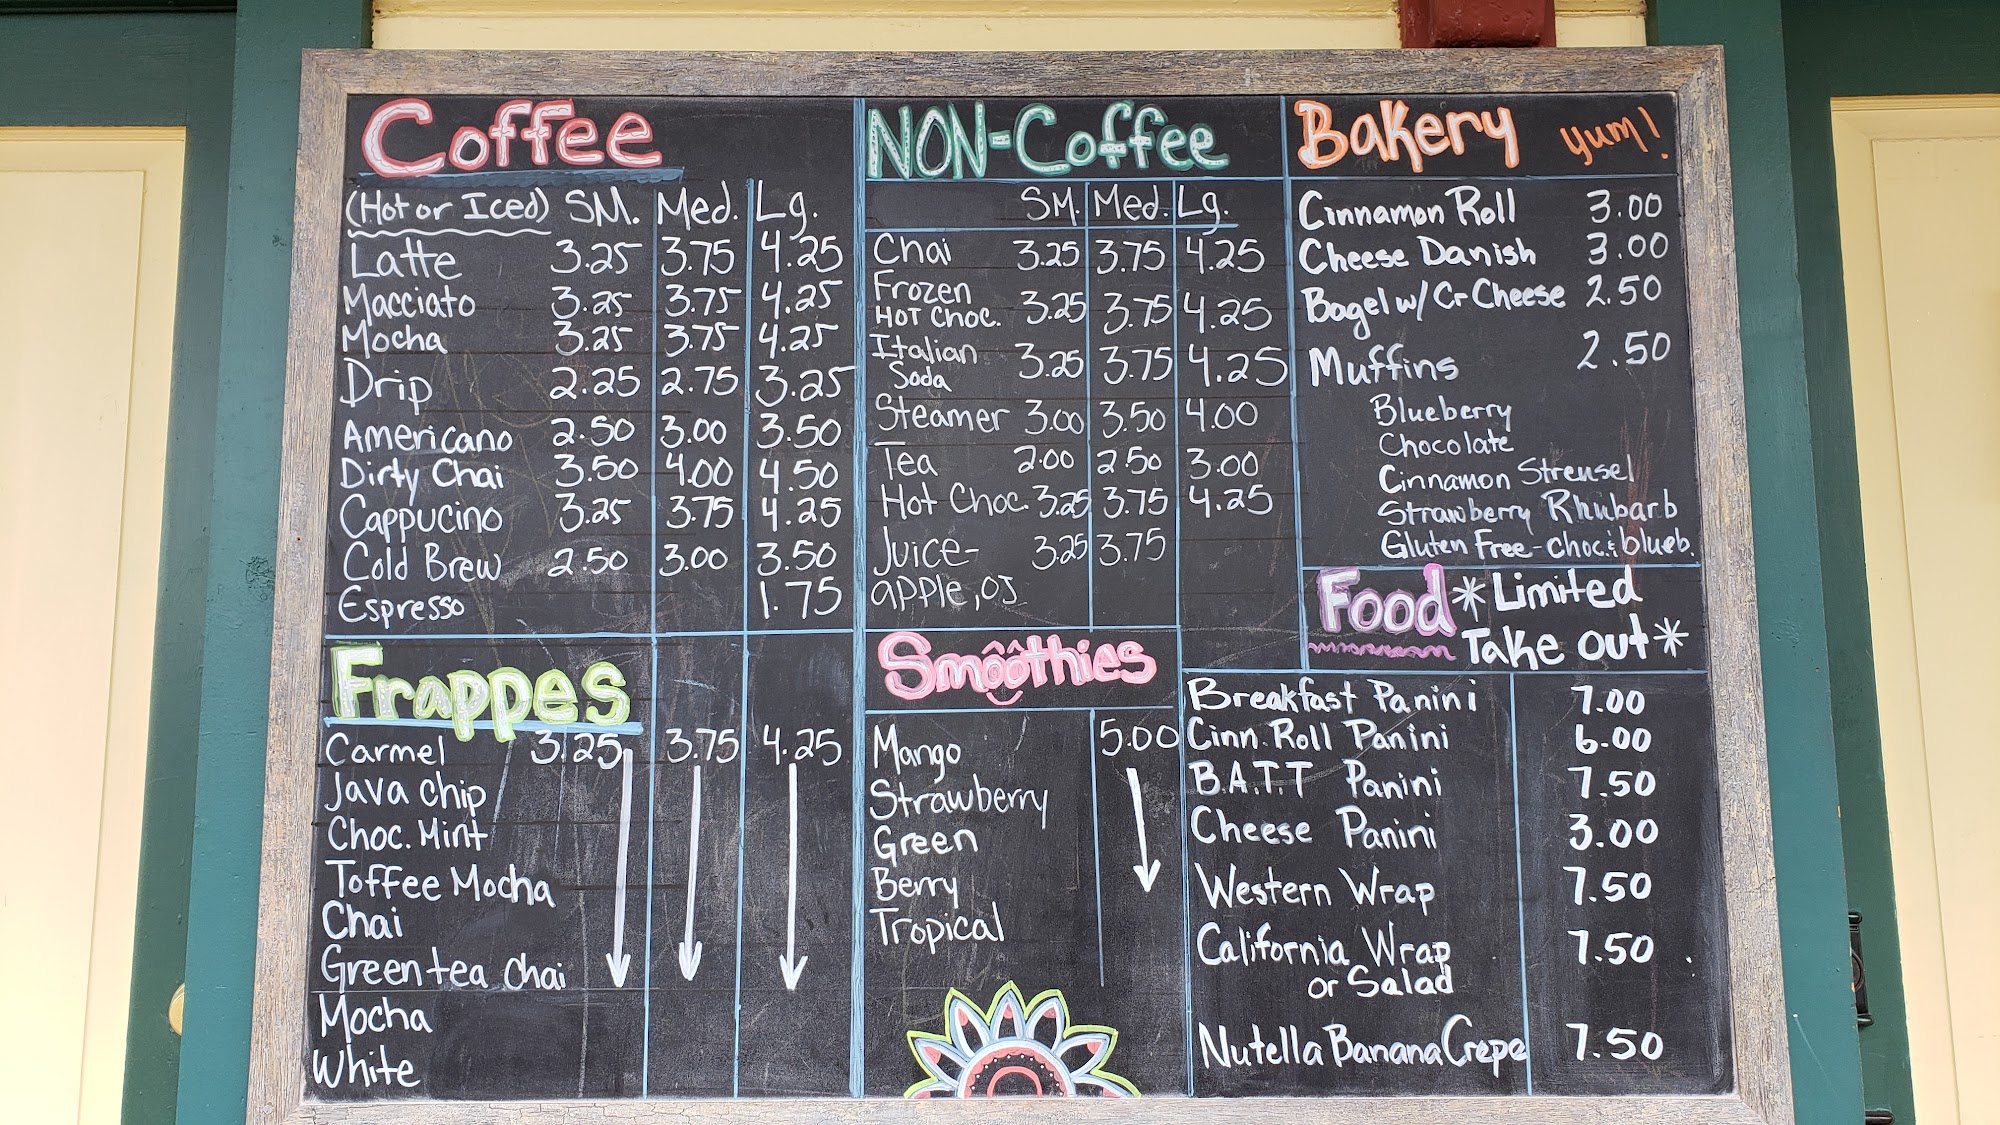 Coffee
(Hot or Iced) SM. Med. Lg.
Latte 3.25 3.75 4.25
Macciato 3.25 3.75 4.25
Mocha 3.25 3.75 4.25
Drip 2.25 2.75 3.25
Americano 2.50 3.00 3.50
Dirty Chai 3.50 4.00 4.50
Cappucino 3.25 3.75 4.25
Cold Brew 2.50 3.00 3.50
Espresso 1.75
Frappes
Carmel 3.25 3.75 4.25
Java chip
Choc. Mint
Toffee Mocha
Chai
Green tea Chai
Mocha
White
NON-Coffee
SM. Med. Lg.
Chai 3.25 3.75 4.25
Frozen
HOT CHOC. 3.25 3.75 4.25
Italian
Soda 3.25 3.75 4.25
Steamer 3.00 3.50 4.00
Tea 2.00 2.50 3.00
Hot Choc. 3.25 3.75 4.25
Juice- 3.25 3.75
apple, OJ
Smoothies
Mango 5.00
Strawberry
Green
Berry
Tropical
Bakery yum!
Cinnamon Roll 3.00
Cheese Danish 3.00
Bagel w/ Cr Cheese 2.50
Muffins 2.50
Blueberry
Chocolate
Cinnamon Streusel
Strawberry Rhubarb
Gluten Free-choc. & blueb.
Food *Limited
Take out*
Breakfast Panini 7.00
Cinn. Roll Panini 6.00
B.A.T.T Panini 7.50
Cheese Panini 3.00
Western Wrap 7.50
California Wrap 7.50
or Salad
Nutella Banana Crepe 7.50